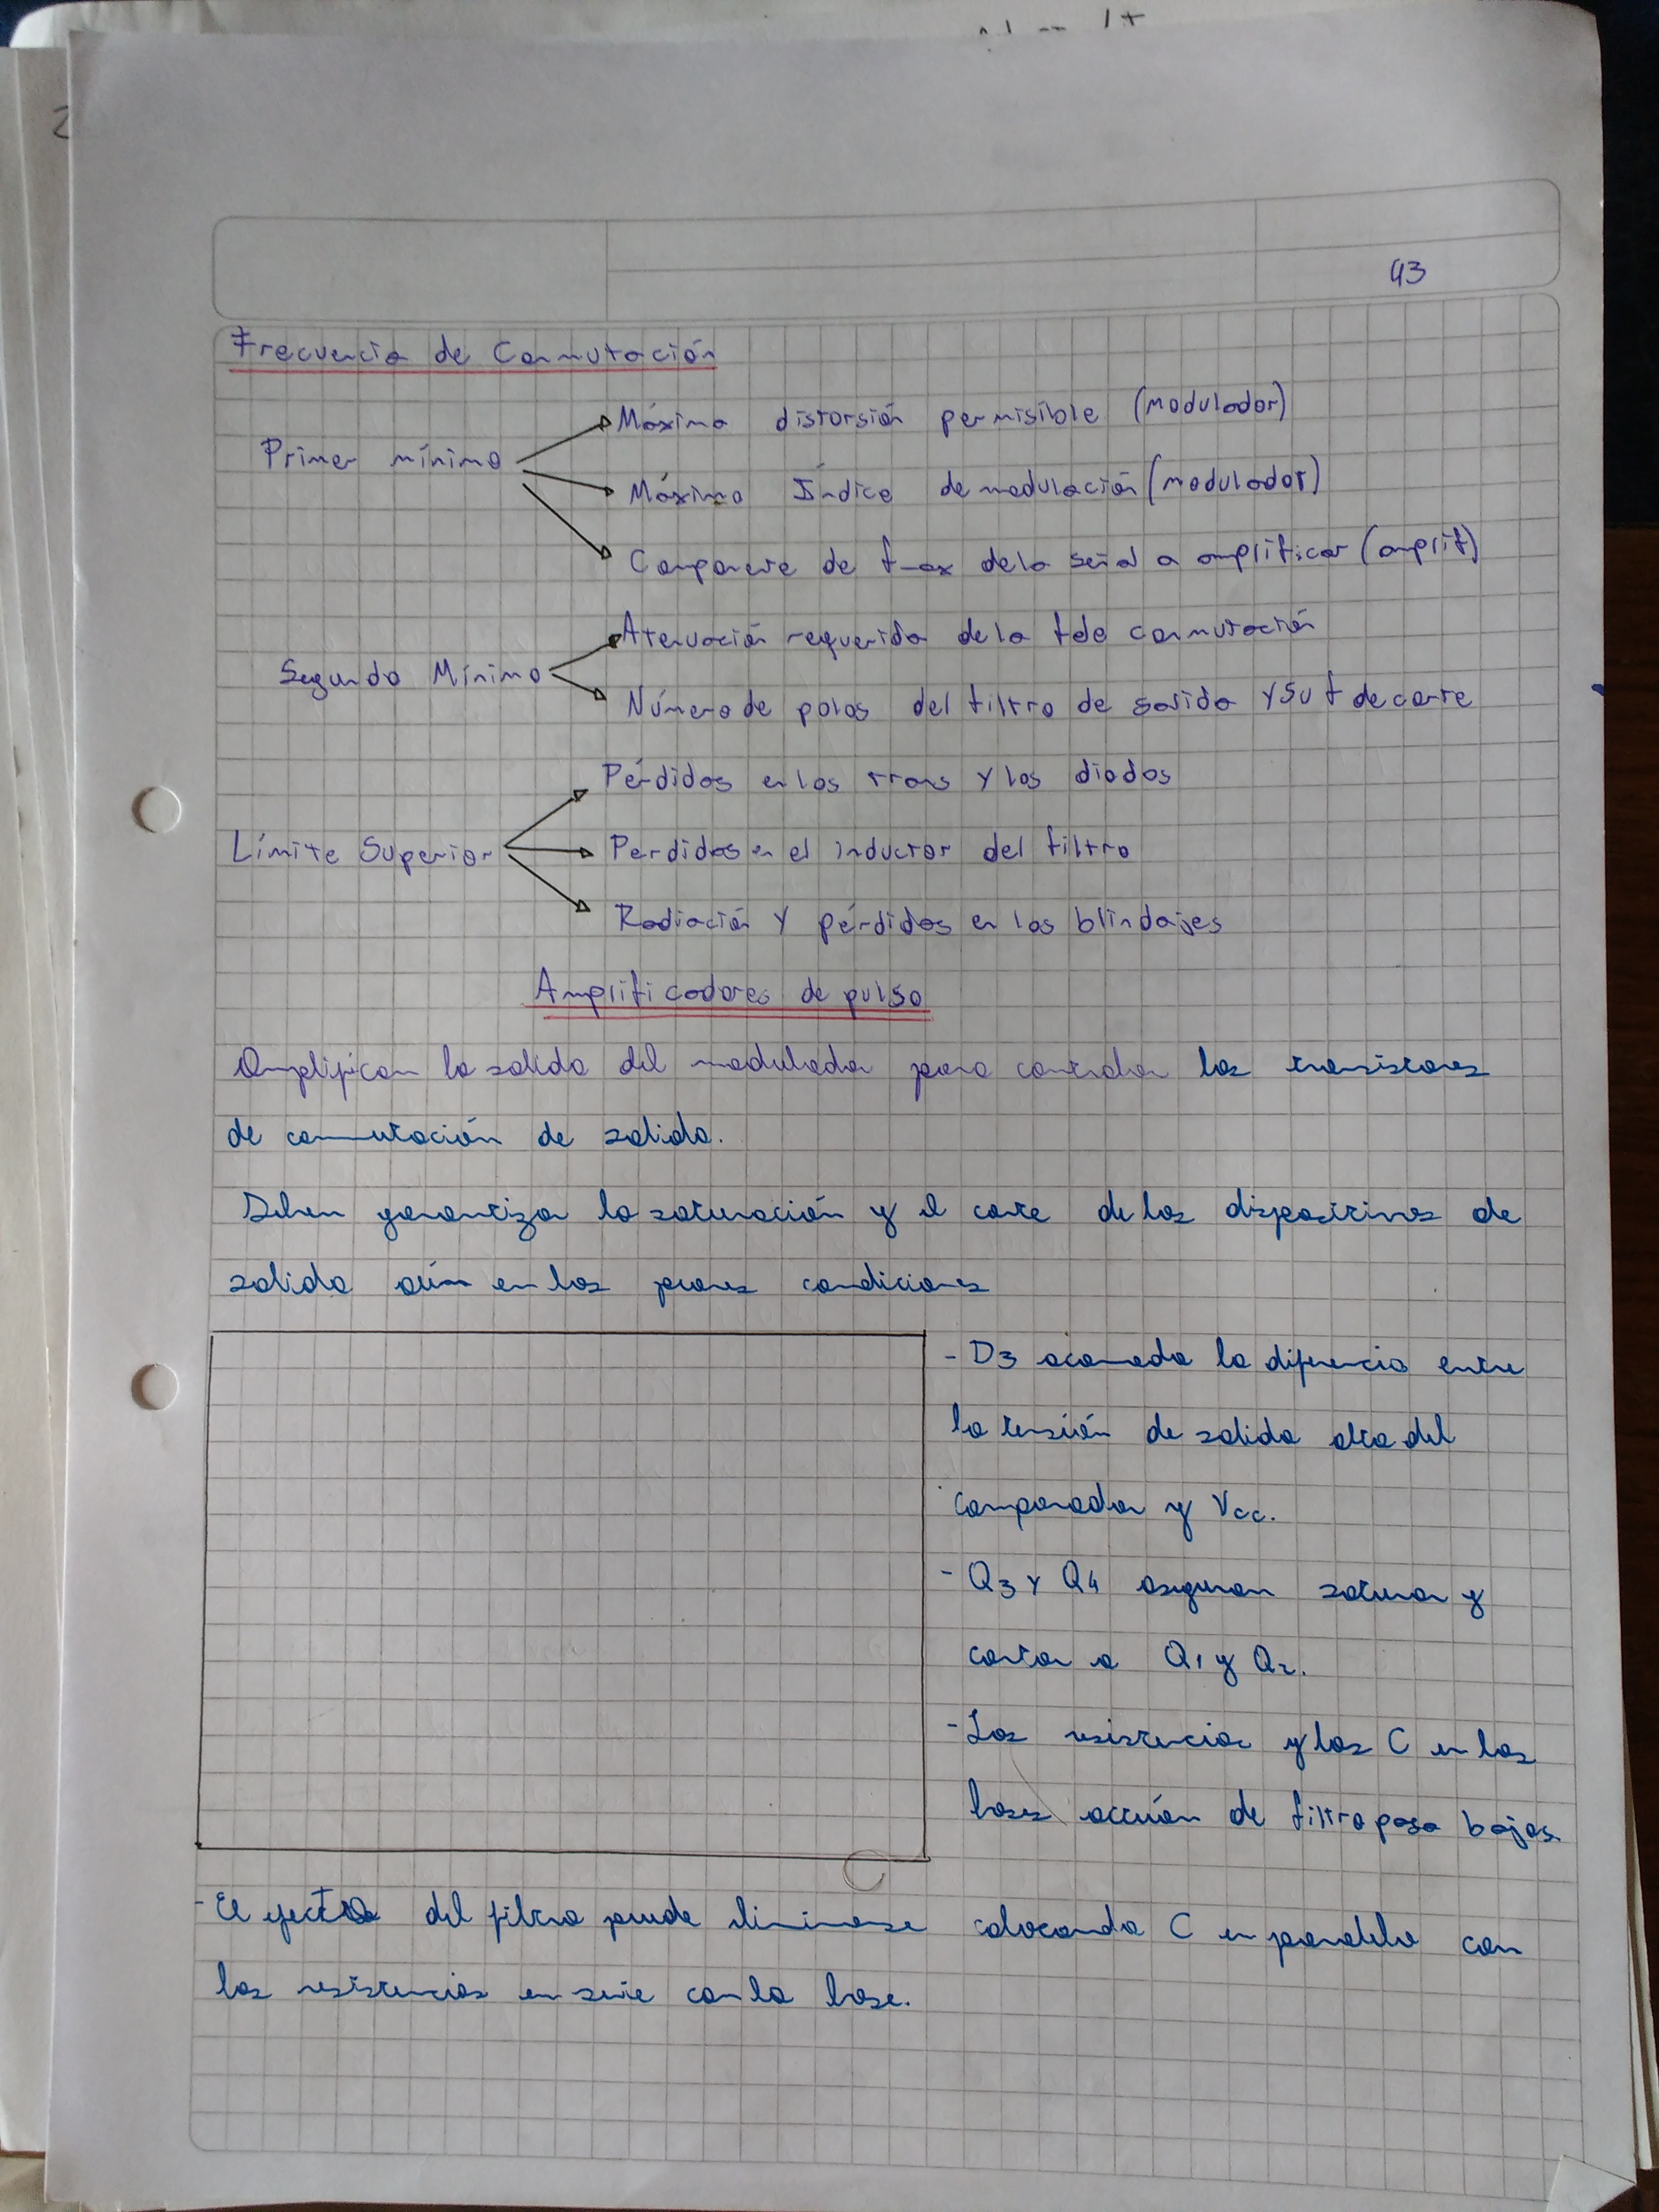 43
Frecuencia de Conmutación
Máxima distorsión permisible (modulador)
Primer mínimo
Máximo Índice de modulación (modulador)
Componente de fmax de la señal a amplificar (amplif)
Atenuación requerida de la f de conmutación
Segundo Mínimo
Número de polos del filtro de salida y su f de corte
Pérdidas en los trans y los diodos
Límite Superior
Perdidas en el inductor del filtro
Radiación y pérdidas en los blindajes
Amplificadores de pulso
Amplifican la salida del modulador para controlar los transistores
de conmutación de salida.
Deben garantizar la saturación y el corte de los dispositivos de
salida aún en las peores condiciones
- D3 acomoda la diferencia entre
la tensión de salida alta del
comparador y Vcc.
- Q3 y Q4 aseguran saturar y
cortar a Q1 y Q2.
- Las resistencias y los C en las
bases acción de filtro pasa bajos.
- El efecto del filtro puede eliminarse colocando C en paralelo con
las resistencias en serie con la base.